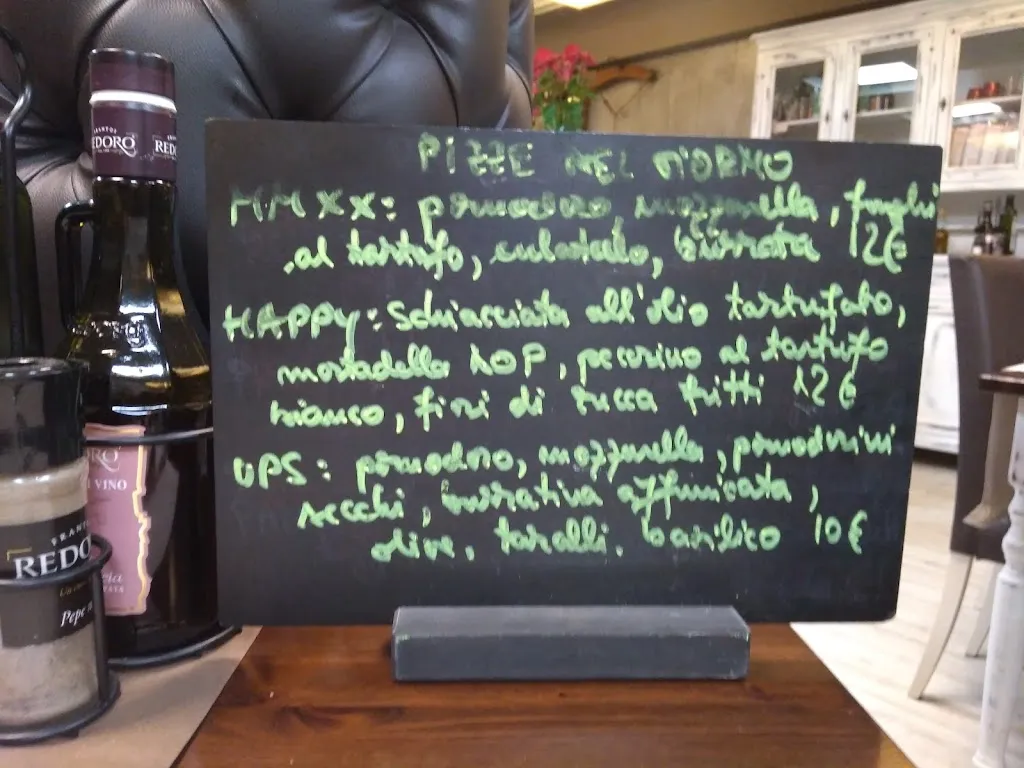 PIZZE DEL GIORNO
MMXX: pomodoro, mozzarella, funghi
al tartufo, culatello, burrata 12€
HAPPY: schiacciata all'olio tartufato,
mortadella DOP, pecorino al tartufo
bianco, fiori di zucca fritti 12€
UPS: pomodoro, mozzarella, pomodorini
secchi, burratina affumicata,
olive, taralli, basilico 10€
FRANTOI
REDORO
RED
ORO
DI VINO
FRANTOI
REDO
Pepe